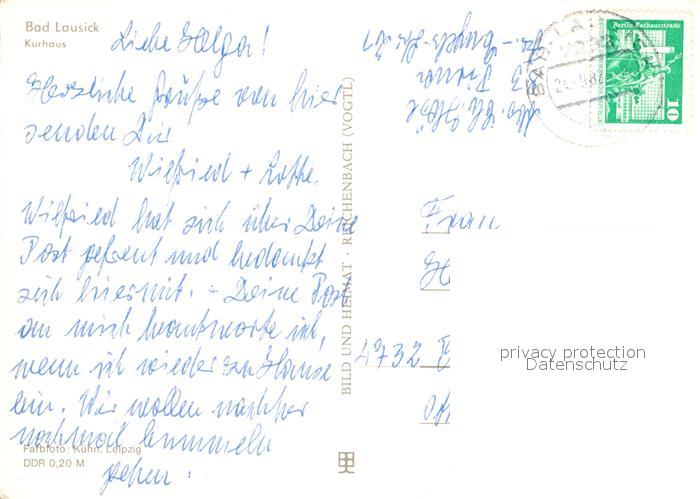 Bad Lausick
Kurhaus
Liebe Helga!
Herzliche Grüße von hier
senden Dir
Wilfried + Lotte.
Wilfried hat sich über Deine
Post gefreut und bedankt
sich hiermit. - Deine Post
an mich beantworte ich,
wenn ich wieder zu Hause
bin. Wir wollen nachher
nochmal bummeln
gehen.
Farbfoto: Kühn, Leipzig
DDR 0,20 M
BILD UND HEIMAT · REICHENBACH (VOGTL)
Pirna
Berlin Rathausstraße
10
BAD LA
Frau
4732
privacy protection
Datenschutz